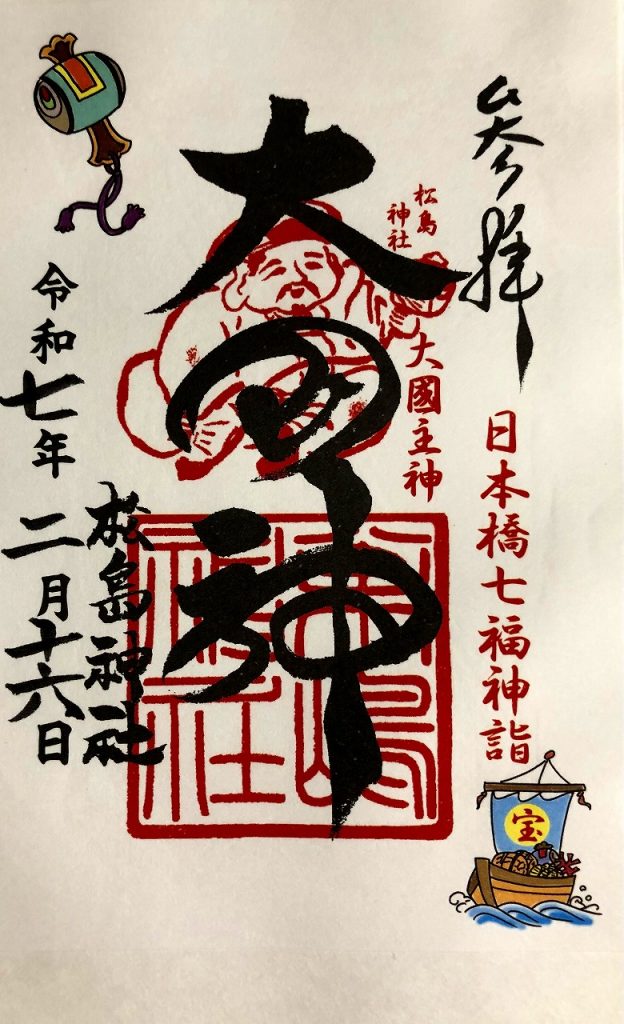 参拝
日本橋七福神詣
松島
神社
大國主神
大国神
松嶋
神社
松島神社
令和七年二月十六日
宝